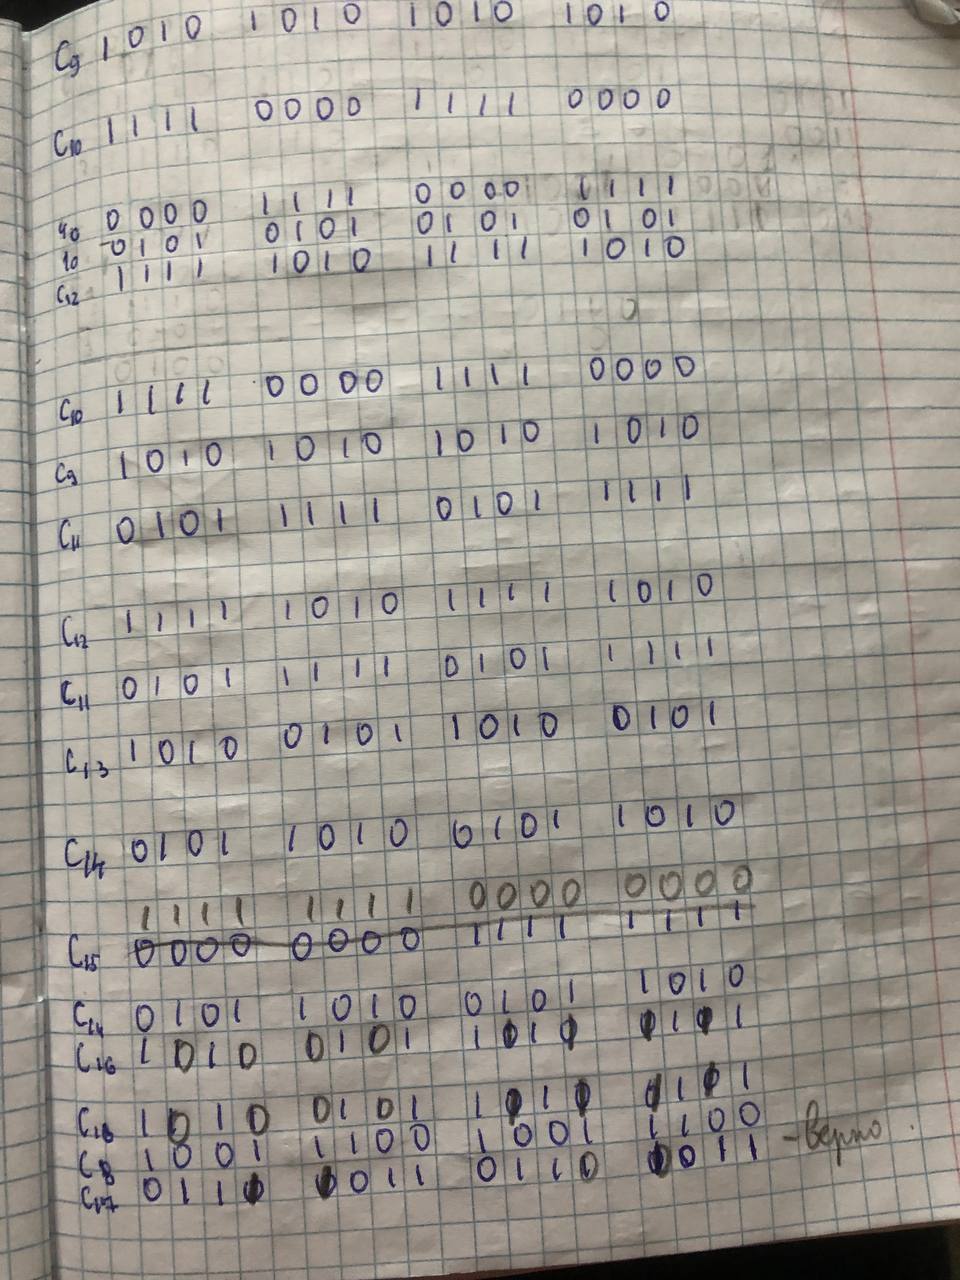 C9 1010 1010 1010 1010
C10 1111 0000 1111 0000
40 0000 1111 0000 1111
10 0101 0101 0101 0101
C12 1111 1010 1111 1010
C10 1111 0000 1111 0000
C9 1010 1010 1010 1010
C11 0101 1111 0101 1111
C12 1111 1010 1111 1010
C11 0101 1111 0101 1111
C13 1010 0101 1010 0101
C14 0101 1010 0101 1010
1111 1111 0000 0000
C15 0000 0000 1111 1111
C14 0101 1010 0101 1010
C16 1010 0101 1010 0101
C16 1010 0101 1010 0101
C8 1001 1100 1001 1100
C17 0110 0011 0110 0011 - верно.